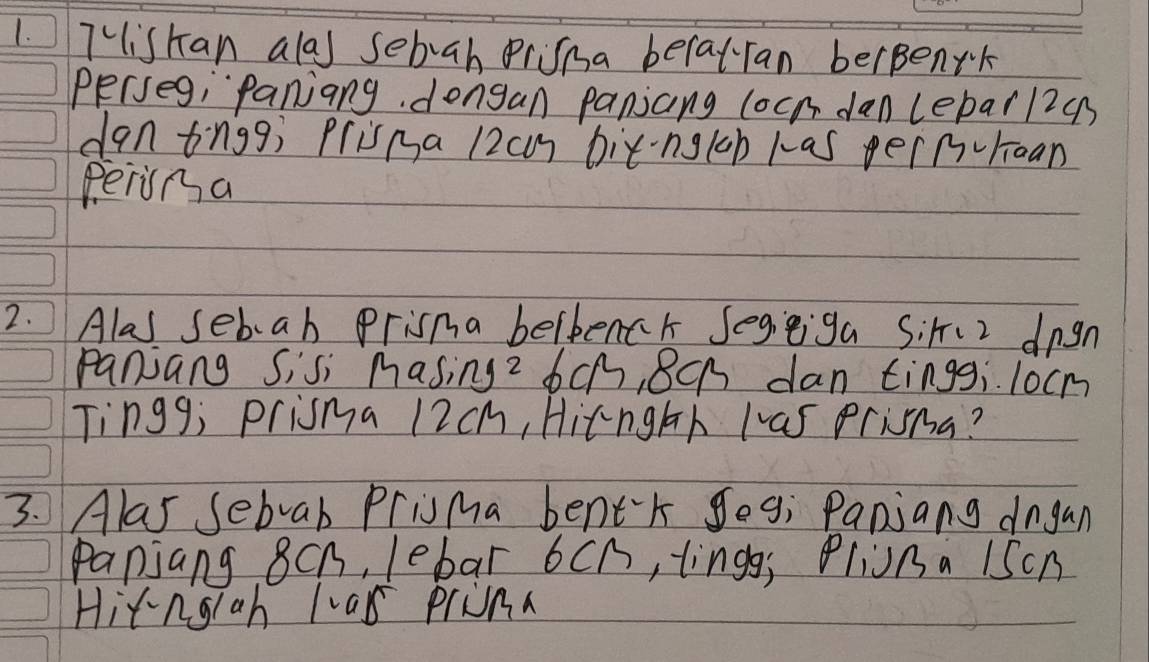 1. Tuliskan alas sebuah Prisma beraturan berBentuk
Persegi Panjang. dengan panjang 10cm dan Lebar 12cm
dan tinggi Prisma 12cm hitunglah luas permukaan
Perisma
2. Alas sebuah Prisma berbentuk Segitiga Siku2 dngn
Panjang Sisi masing2 6cm, 8cm dan tinggi. 10cm
Tinggi prisma 12cm, Hitunglah luas Prisma?
3. Alas sebuah Prisma bentuk segi Panjang dngan
Panjang 8cm, lebar 6cm, tinggi Prisma 15cm
Hitunglah luas Prisma